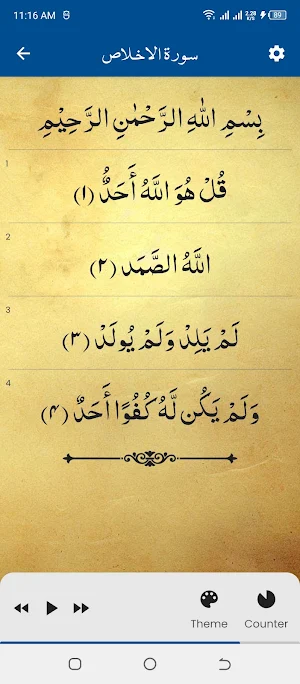 11:16 AM
2.28 K/s 89
سورة الاخلاص
بِسْمِ اللهِ الرَّحْمٰنِ الرَّحِيْمِ
1
قُلْ هُوَ اللَّهُ أَحَدٌ (۱)
2
اللَّهُ الصَّمَد (۲)
3
لَمْ يَلِدْ وَلَمْ يُولَدْ (۳)
4
وَلَمْ يَكُن لَّهُ كُفُوًا أَحَدٌ (۴)
Theme Counter